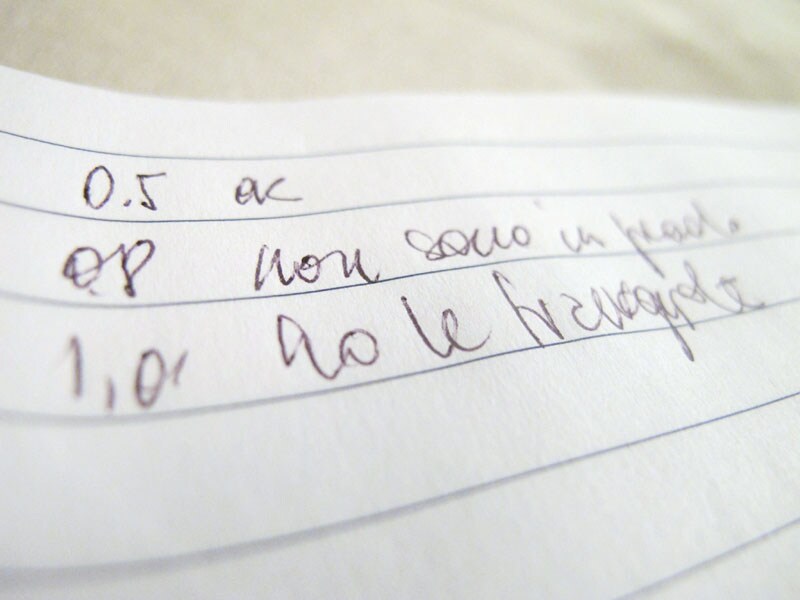 0.5 ok
0.8 non sono in grado
1,0 ho le traveggole